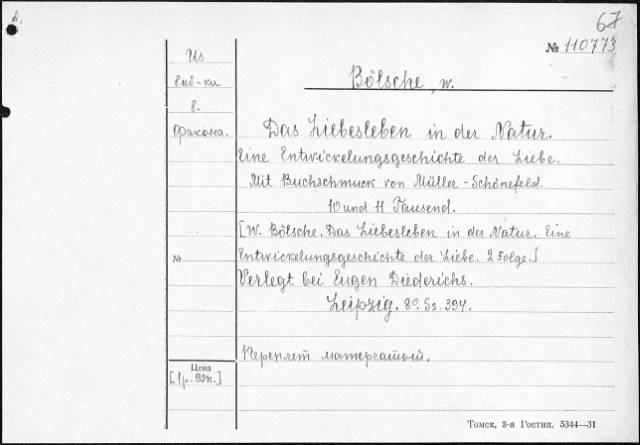 d.
67
№ 110773
Из
биб-ки
в.
Фракона.
Bölsche, W.
Das Liebesleben in der Natur.
Eine Entwickelungsgeschichte der Liebe.
Mit Buchschmuck von Müller-Schönefeld.
10 und 11 Tausend.
[W. Bölsche. Das Liebesleben in der Natur. Eine
Entwickelungsgeschichte der Liebe. 2 Folge.]
Verlegt bei Eugen Diederichs.
Leipzig. 8°. Ss. 394.
№
Переплет матерчатый.
Цена
[1р. 95к.]
Томск, 3-я Гостип. 5344—31